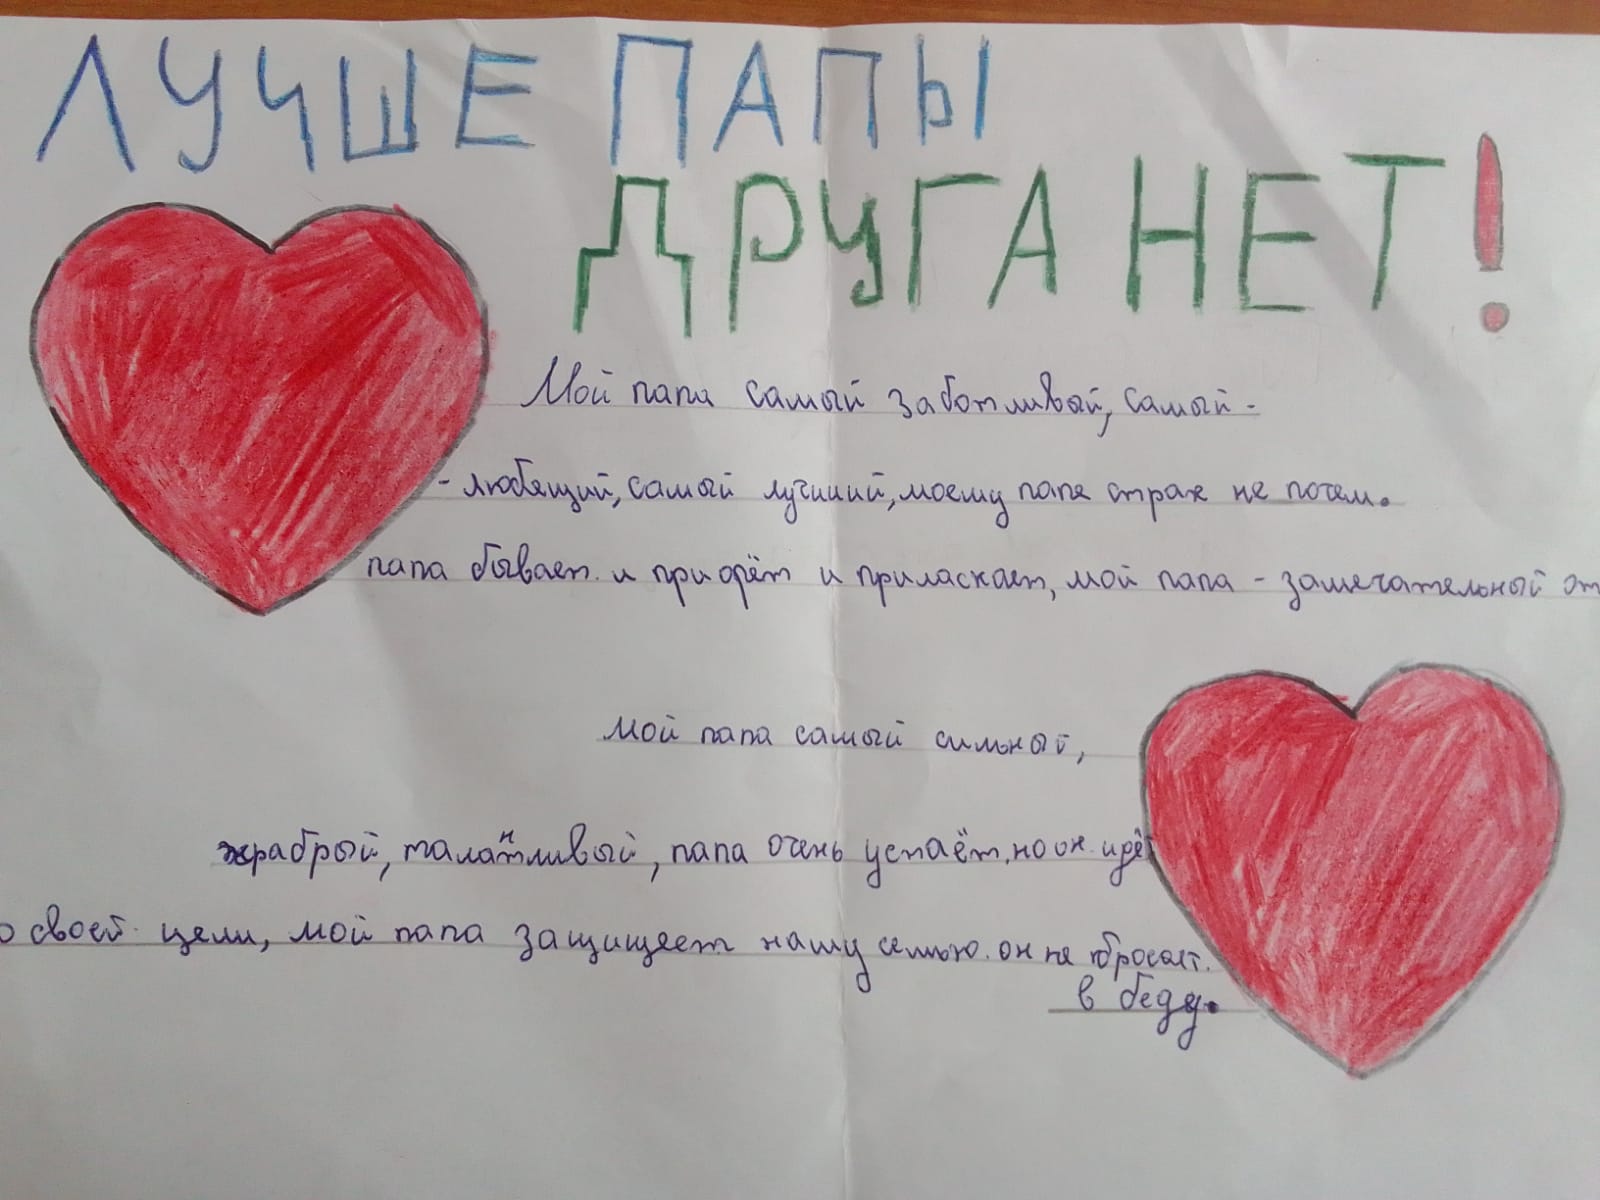 ЛУЧШЕ ПАПЫ
ДРУГА НЕТ!
Мой папа самый заботливый, самый-
-любящий, самый лучший, моему папе страх не почем.
папа бывает и приорёт и приласкает, мой папа - замечательный от
мой папа самый сильный,
храбрый, талантливый, папа очень устаёт, но он идёт
о своей цели, мой папа защищает нашу семью. он не бросает.
в беду.